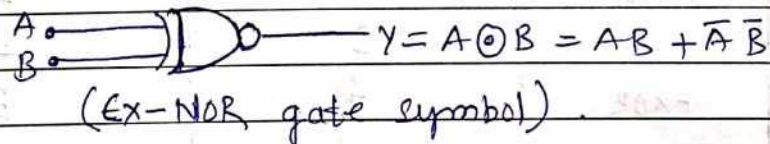 A
Y = A ⊙ B = AB + A̅ B̅
B
(Ex-NOR gate symbol).